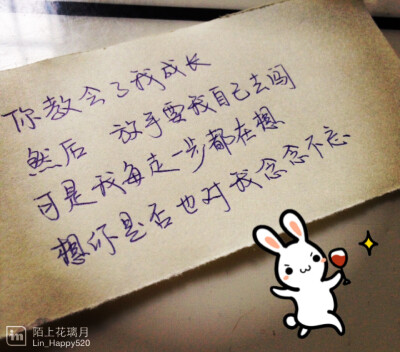 你教会了我成长
然后 放手要我自己去闯
可是我每走一步都在想
想你是否也对我念念不忘
in 陌上花璃月
Lin_Happy520